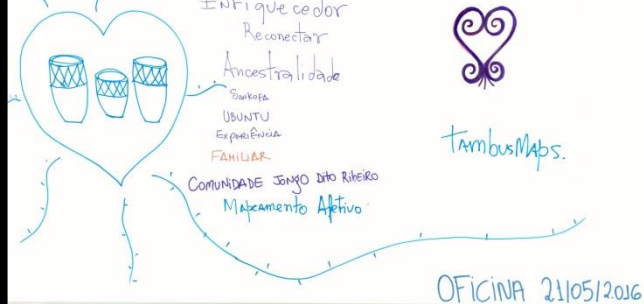 Enriquecedor
Reconectar
Ancestralidade
Sankofa
UBUNTU
EXPERIÊNCIA
FAMILIAR
COMUNIDADE JONGO DITO RIBEIRO
Mapeamento Afetivo
TAmbusMAps.
OFiCiNA 21/05/2.016